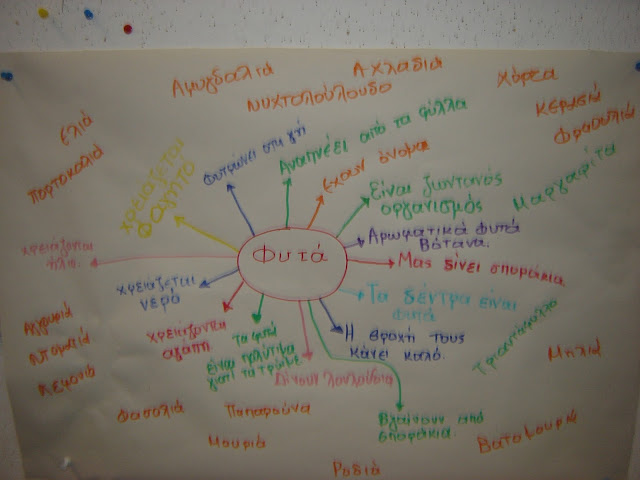 Αμυγδαλιά
Αχλαδιά
Νυχτολούλουδο
Χόρτα
Κερασιά
Φραουλιά
Ελιά
Πορτοκαλιά
χρειάζεται
φαγητό
φυτρώνει στη γή
Αναπνέει από τα φύλλα
Εχουν όνομα
Είναι ζωντανός
οργανισμός
Μαργαρίτα
Αρωματικά φυτά
Βότανα.
Φυτά
Μας δίνει σποράκια
χρειάζονται
ήλιο.
χρειάζεται
νερό
Τα δέντρα είναι
φυτά
Τριαντάφυλλο
χρειάζονται
αγάπη
τα φυτά
είναι πολύτιμα
γιατί τα τρώμε
Η βροχή τους
κάνει καλό.
Δίνουν λουλούδια
Βγαίνουν από
σποράκια.
Αγγουριά
Ντοματιά
Λεμονιά
Μηλιά
Φασολιά
Παπαρούνα
Μουριά
Βατομουριά
Ροδιά